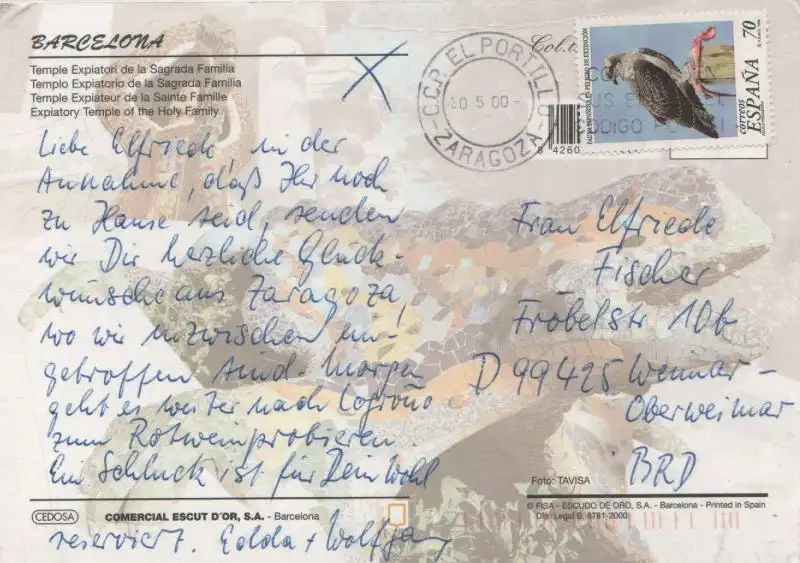 BARCELONA
Temple Expiatori de la Sagrada Familia
Templo Expiatorio de la Sagrada Familia
Temple Expiateur de la Sainte Famille
Expiatory Temple of the Holy Family
Col.
C.C.P. EL PORTILLO
30 5 00
ZARAGOZA
70
ESPAÑA
CORREOS
8 4260
Liebe Elfriede in der
Annahme, daß Ihr noch
zu Hause seid, senden
wir Dir herzliche Glück-
wünsche aus Zaragoza,
wo wir inzwischen ein-
getroffen sind. Morgen
geht es weiter nach Logroño
zum Rotweinprobieren.
Ein Schluck ist für Dein Wohl
reserviert. Edda + Wolfgang
Frau Elfriede
Fischer
Fröbelstr 10b
D 99425 Weimar-
Oberweimar
BRD
Foto: TAVISA
CEDOSA
COMERCIAL ESCUT D'OR, S.A. - Barcelona
© FISA - ESCUDO DE ORO, S.A. - Barcelona - Printed in Spain
Dip. Legal B. 8781-2000